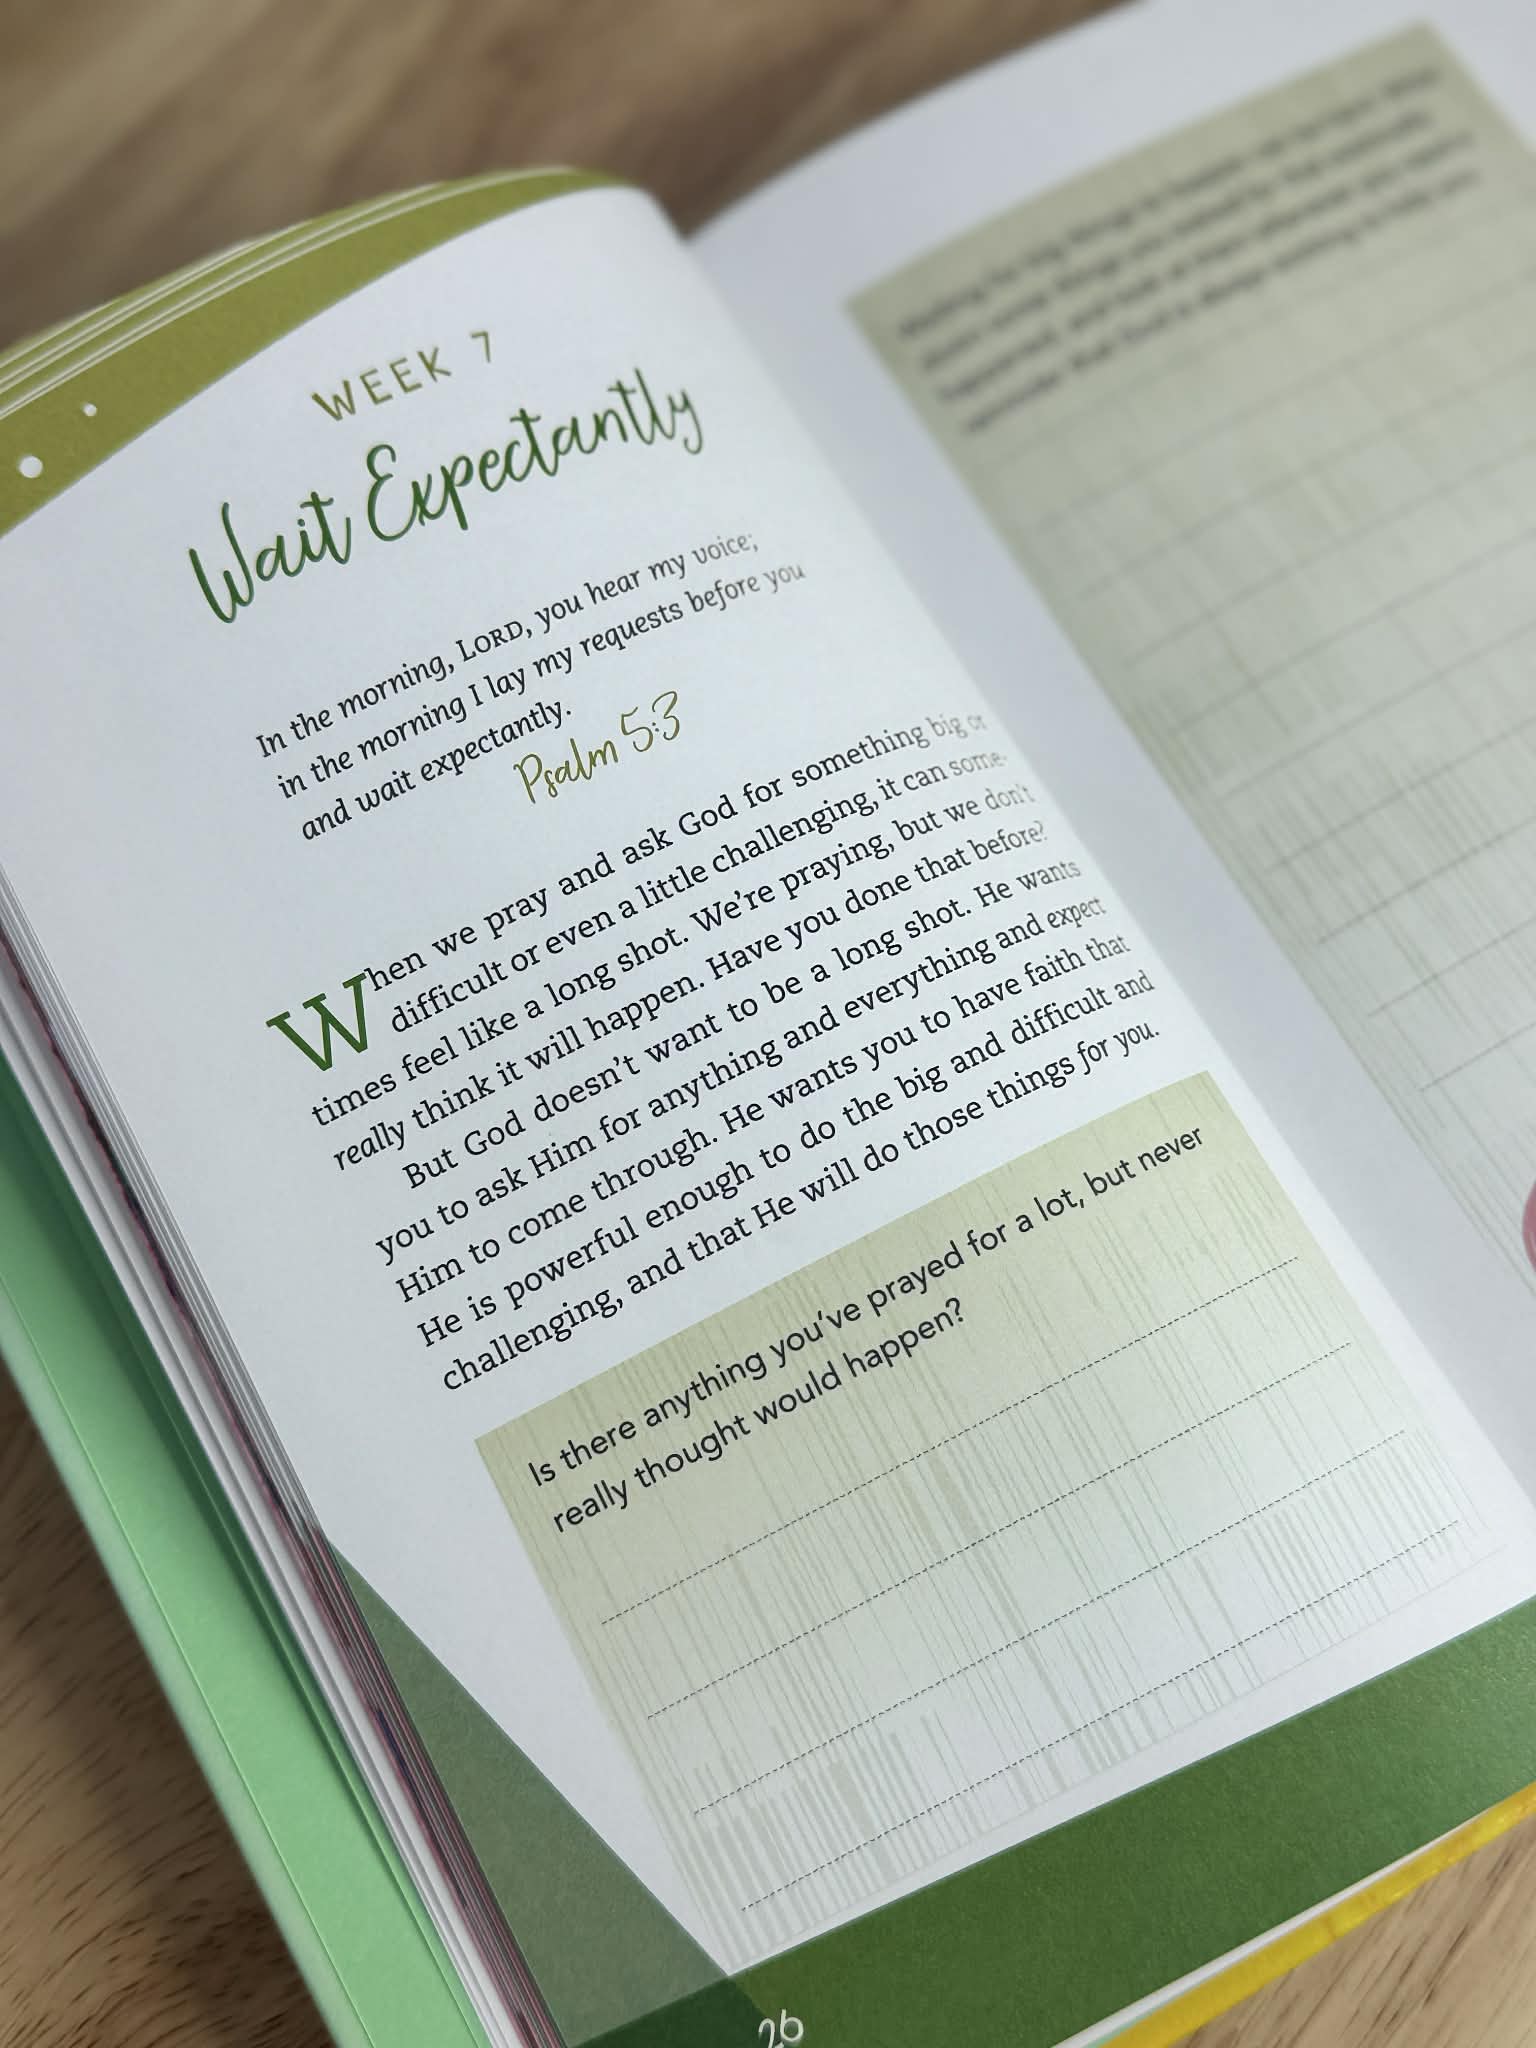 WEEK 7
Wait Expectantly
In the morning, LORD, you hear my voice;
in the morning I lay my requests before you
and wait expectantly.
Psalm 5:3
When we pray and ask God for something big or
difficult or even a little challenging, it can some-
times feel like a long shot. We're praying, but we don't
really think it will happen. Have you done that before?
But God doesn't want to be a long shot. He wants
you to ask Him for anything and everything and expect
Him to come through. He wants you to have faith that
He is powerful enough to do the big and difficult and
challenging, and that He will do those things for you.
Is there anything you've prayed for a lot, but never
really thought would happen?
26